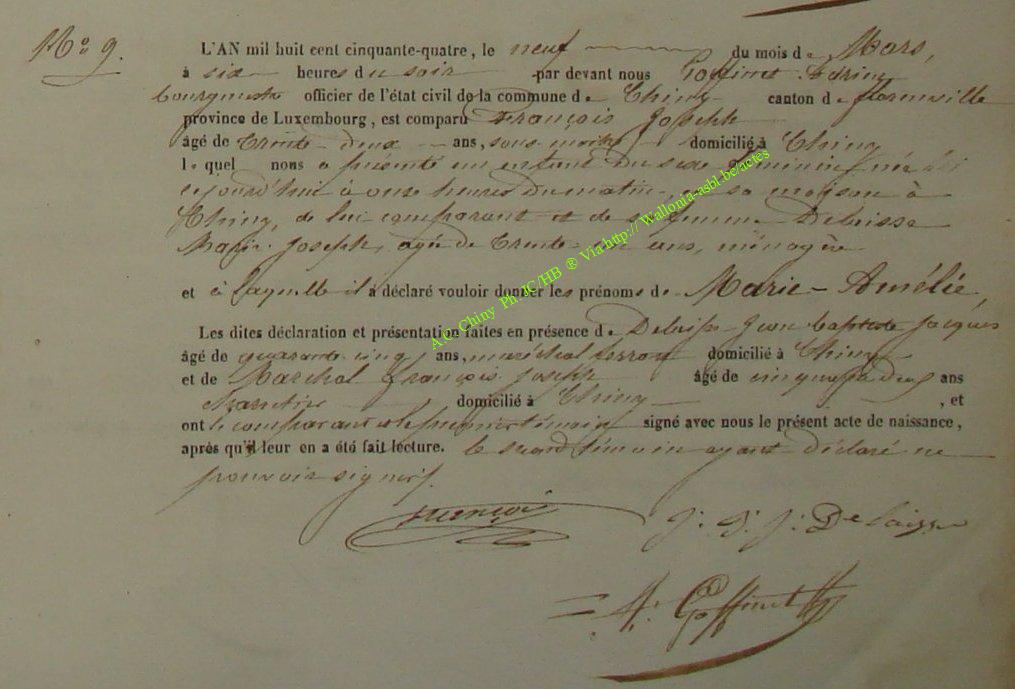 No 9.
L'AN mil huit cent cinquante-quatre, le neuf du mois de Mars,
à six heures du soir par devant nous Goffinet Adrien
bourgmestre officier de l'état civil de la commune de Chiny canton de florenville
province de Luxembourg, est comparu François Joseph
âgé de trente deux ans, domicilié à Chiny
lequel nous a présenté un enfant du sexe féminin, né
cejourd'hui à onze heures du matin en sa maison à
Chiny, de lui comparant et de sa femme Delaisse
Marie Joseph, agée de trente ans, ménagère
et à laquelle il a déclaré vouloir donner les prénoms de Marie-Amélie,
Les dites déclaration et présentation faites en présence de Delaisse Jean baptiste jacques
âgé de quarante cinq ans, maréchal ferrant domicilié à Chiny
et de Marchal françois joseph âgé de cinquante deux ans
domicilié à Chiny , et
ont le comparant et le premier témoin signé avec nous le présent acte de naissance,
après qu'il leur en a été fait lecture. le second témoin ayant déclaré ne
pouvoir signer.
françois J. B. J. Delaisse
A. Goffinet
A.C. Chiny Ph JC/HB ® Via http:// Wallonia-asbl.be/actes